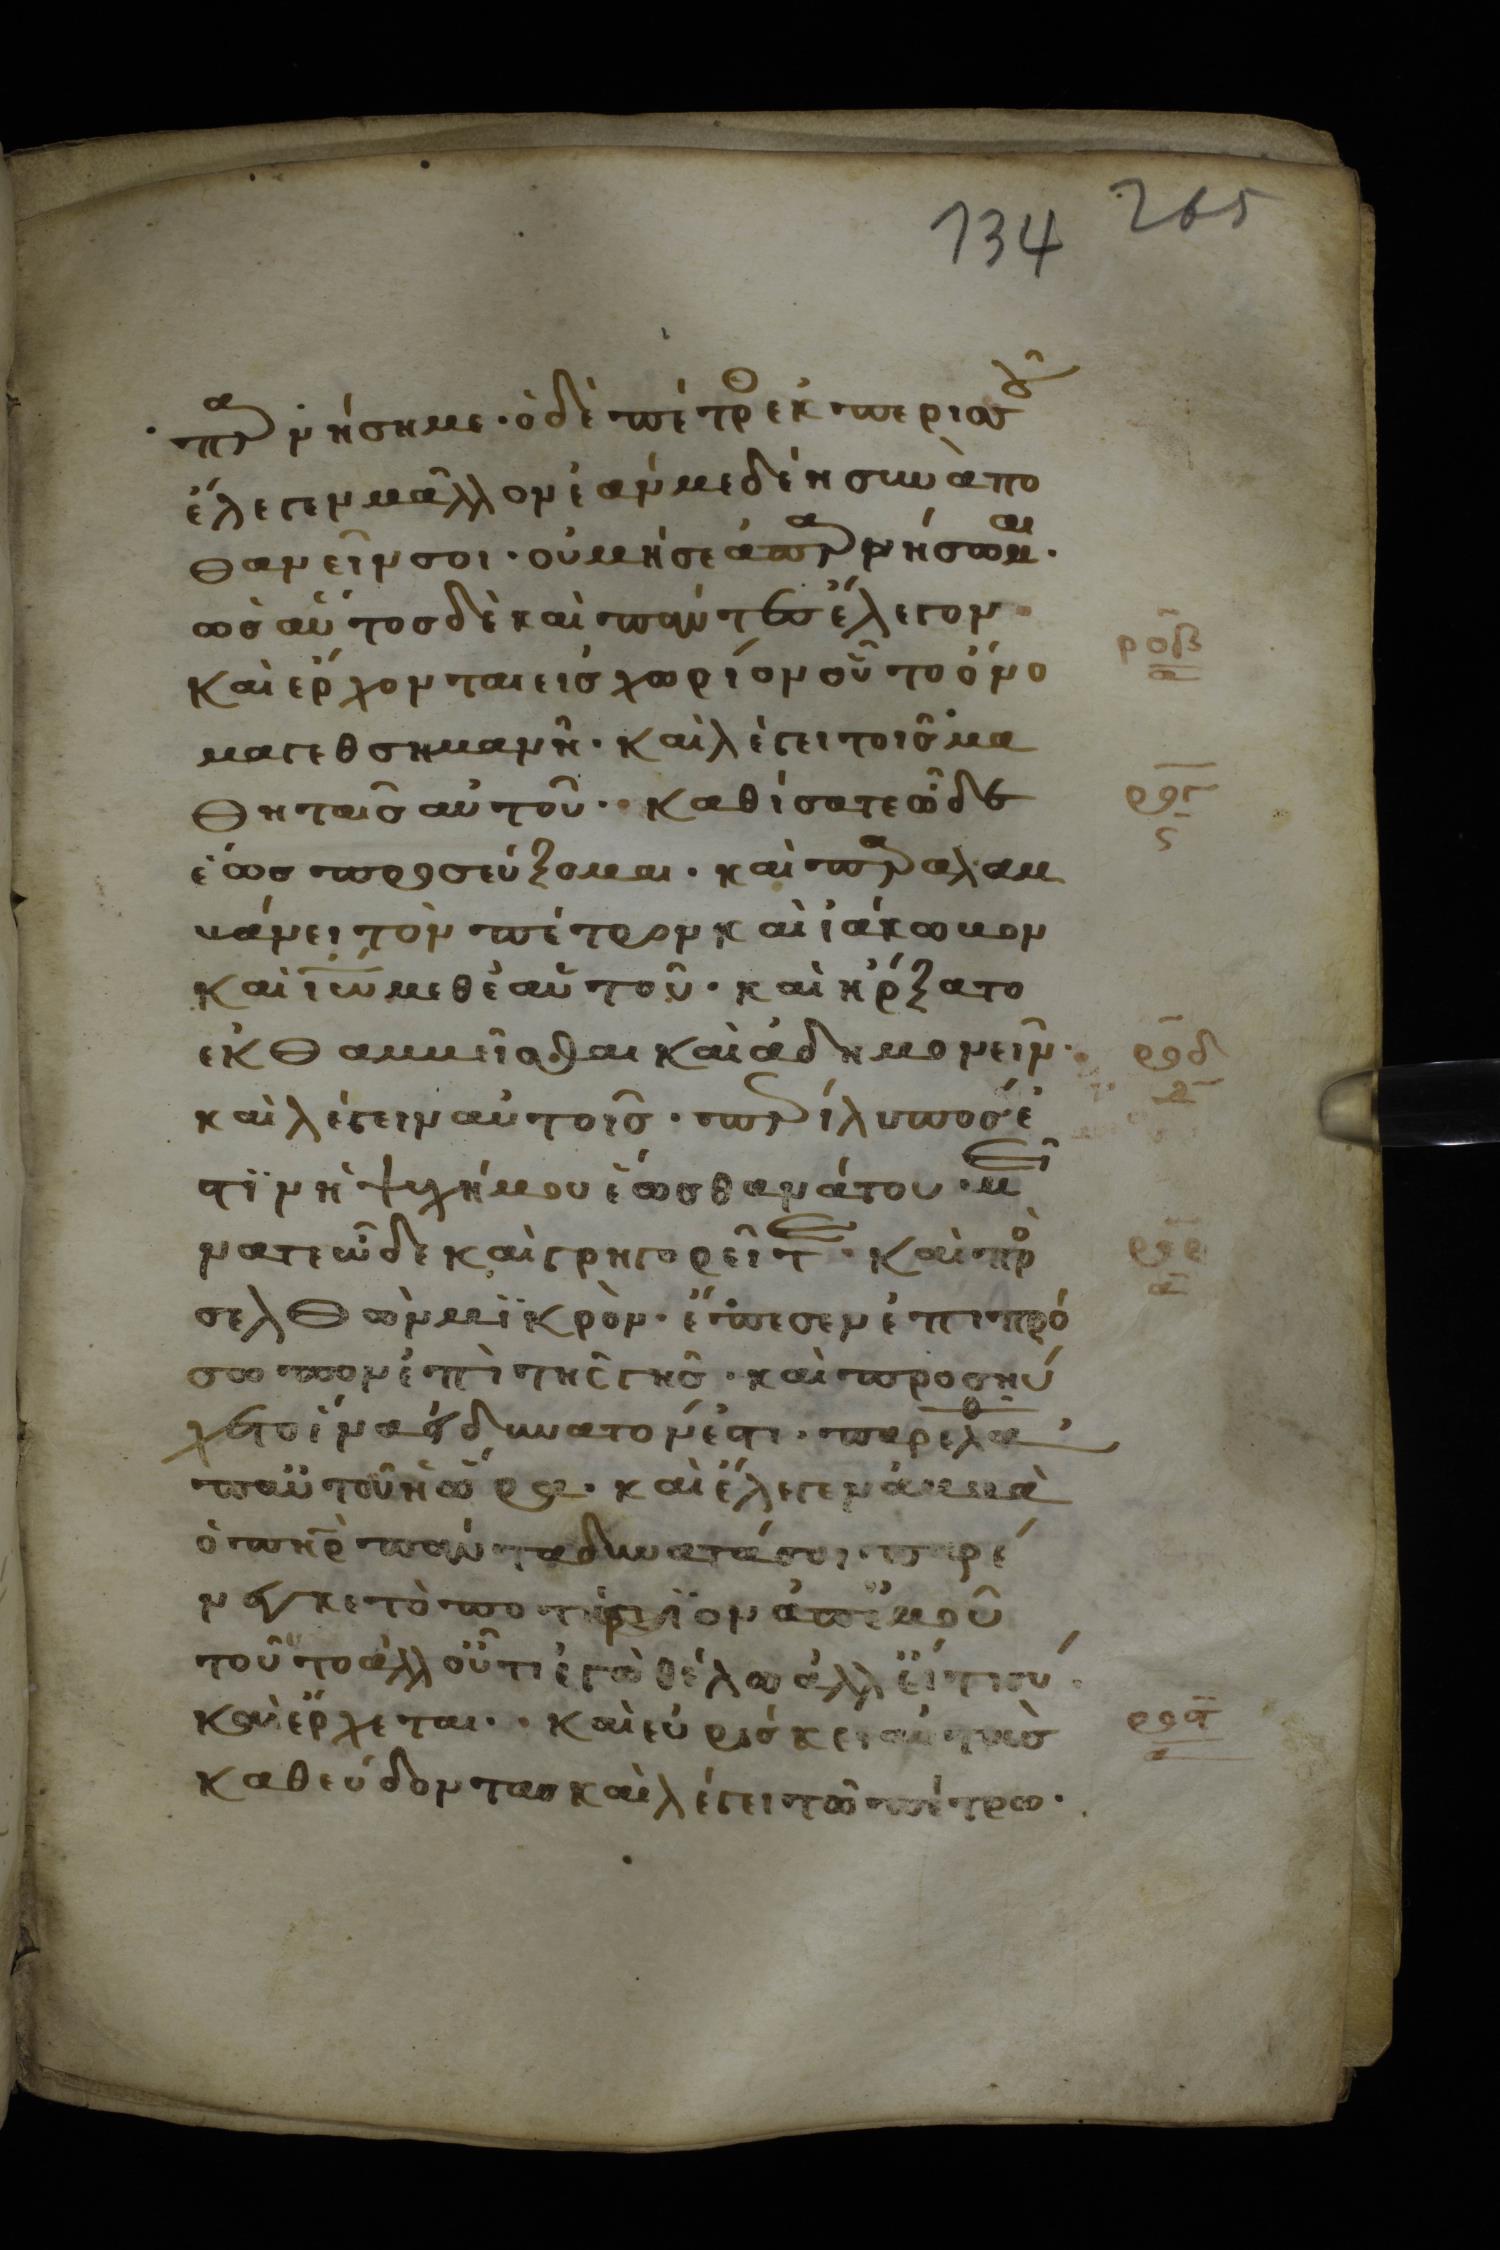 134 265
παρνήση με· ὁ δὲ πέτρος ἐκ περισσοῦ
ἔλεγεν μᾶλλον ἐάν με δέη σὺν ἀπο
θανεῖν σοι· οὐ μή σε ἀπαρνήσωμαι·
ὡσαύτος δὲ καὶ πάντες ἔλεγον·
καὶ ἔρχονται εἰς χωρίον οὗ τὸ ὄνο
μα γεθσημανῆ· καὶ λέγει τοῖς μα
θηταῖς αὐτοῦ· καθίσατε ὧδε
ἕως προσεύξομαι· καὶ παραλαμ
βάνει τὸν πέτρον καὶ ἰάκωβον
καὶ ἰω μεθ ἑαυτοῦ· καὶ ἤρξατο
ἐκθαμβεῖσθαι καὶ ἀδημονεῖν·
καὶ λέγειν αὐτοῖς· περίλυπος ἐ
στϊν ἡ ψυχή μου ἕως θανάτου· μεί
νατε ὧδε καὶ γρηγορεῖτε· καὶ προ
σελθὼν μϊκρὸν· ἔπεσεν ἐπι πρό
σωπον ἐπὶ τῆς γῆς· καὶ προσηύ
χετο ἵνα εἰ δυνατόν ἐστι· παρέλθη ἀ
π αὐτοῦ ἡ ὥρα· καὶ ἔλεγεν ἀββὰ
ὁ πηρ πάντα δυνατά σοι· παρέ
νεγκε τὸ ποτήριον ἀπ ἐμοῦ
τοῦτο ἀλλ οὔ τι ἐγὼ θέλω ἀλλ εἴ τι σύ·
καὶ ἔρχεται· καὶ εὑρίσκει αὐτοὺς
καθεύδοντας καὶ λέγει τῶ πέτρω·
ροβ
α
ργ
ϛ
ροδ
ροε
α